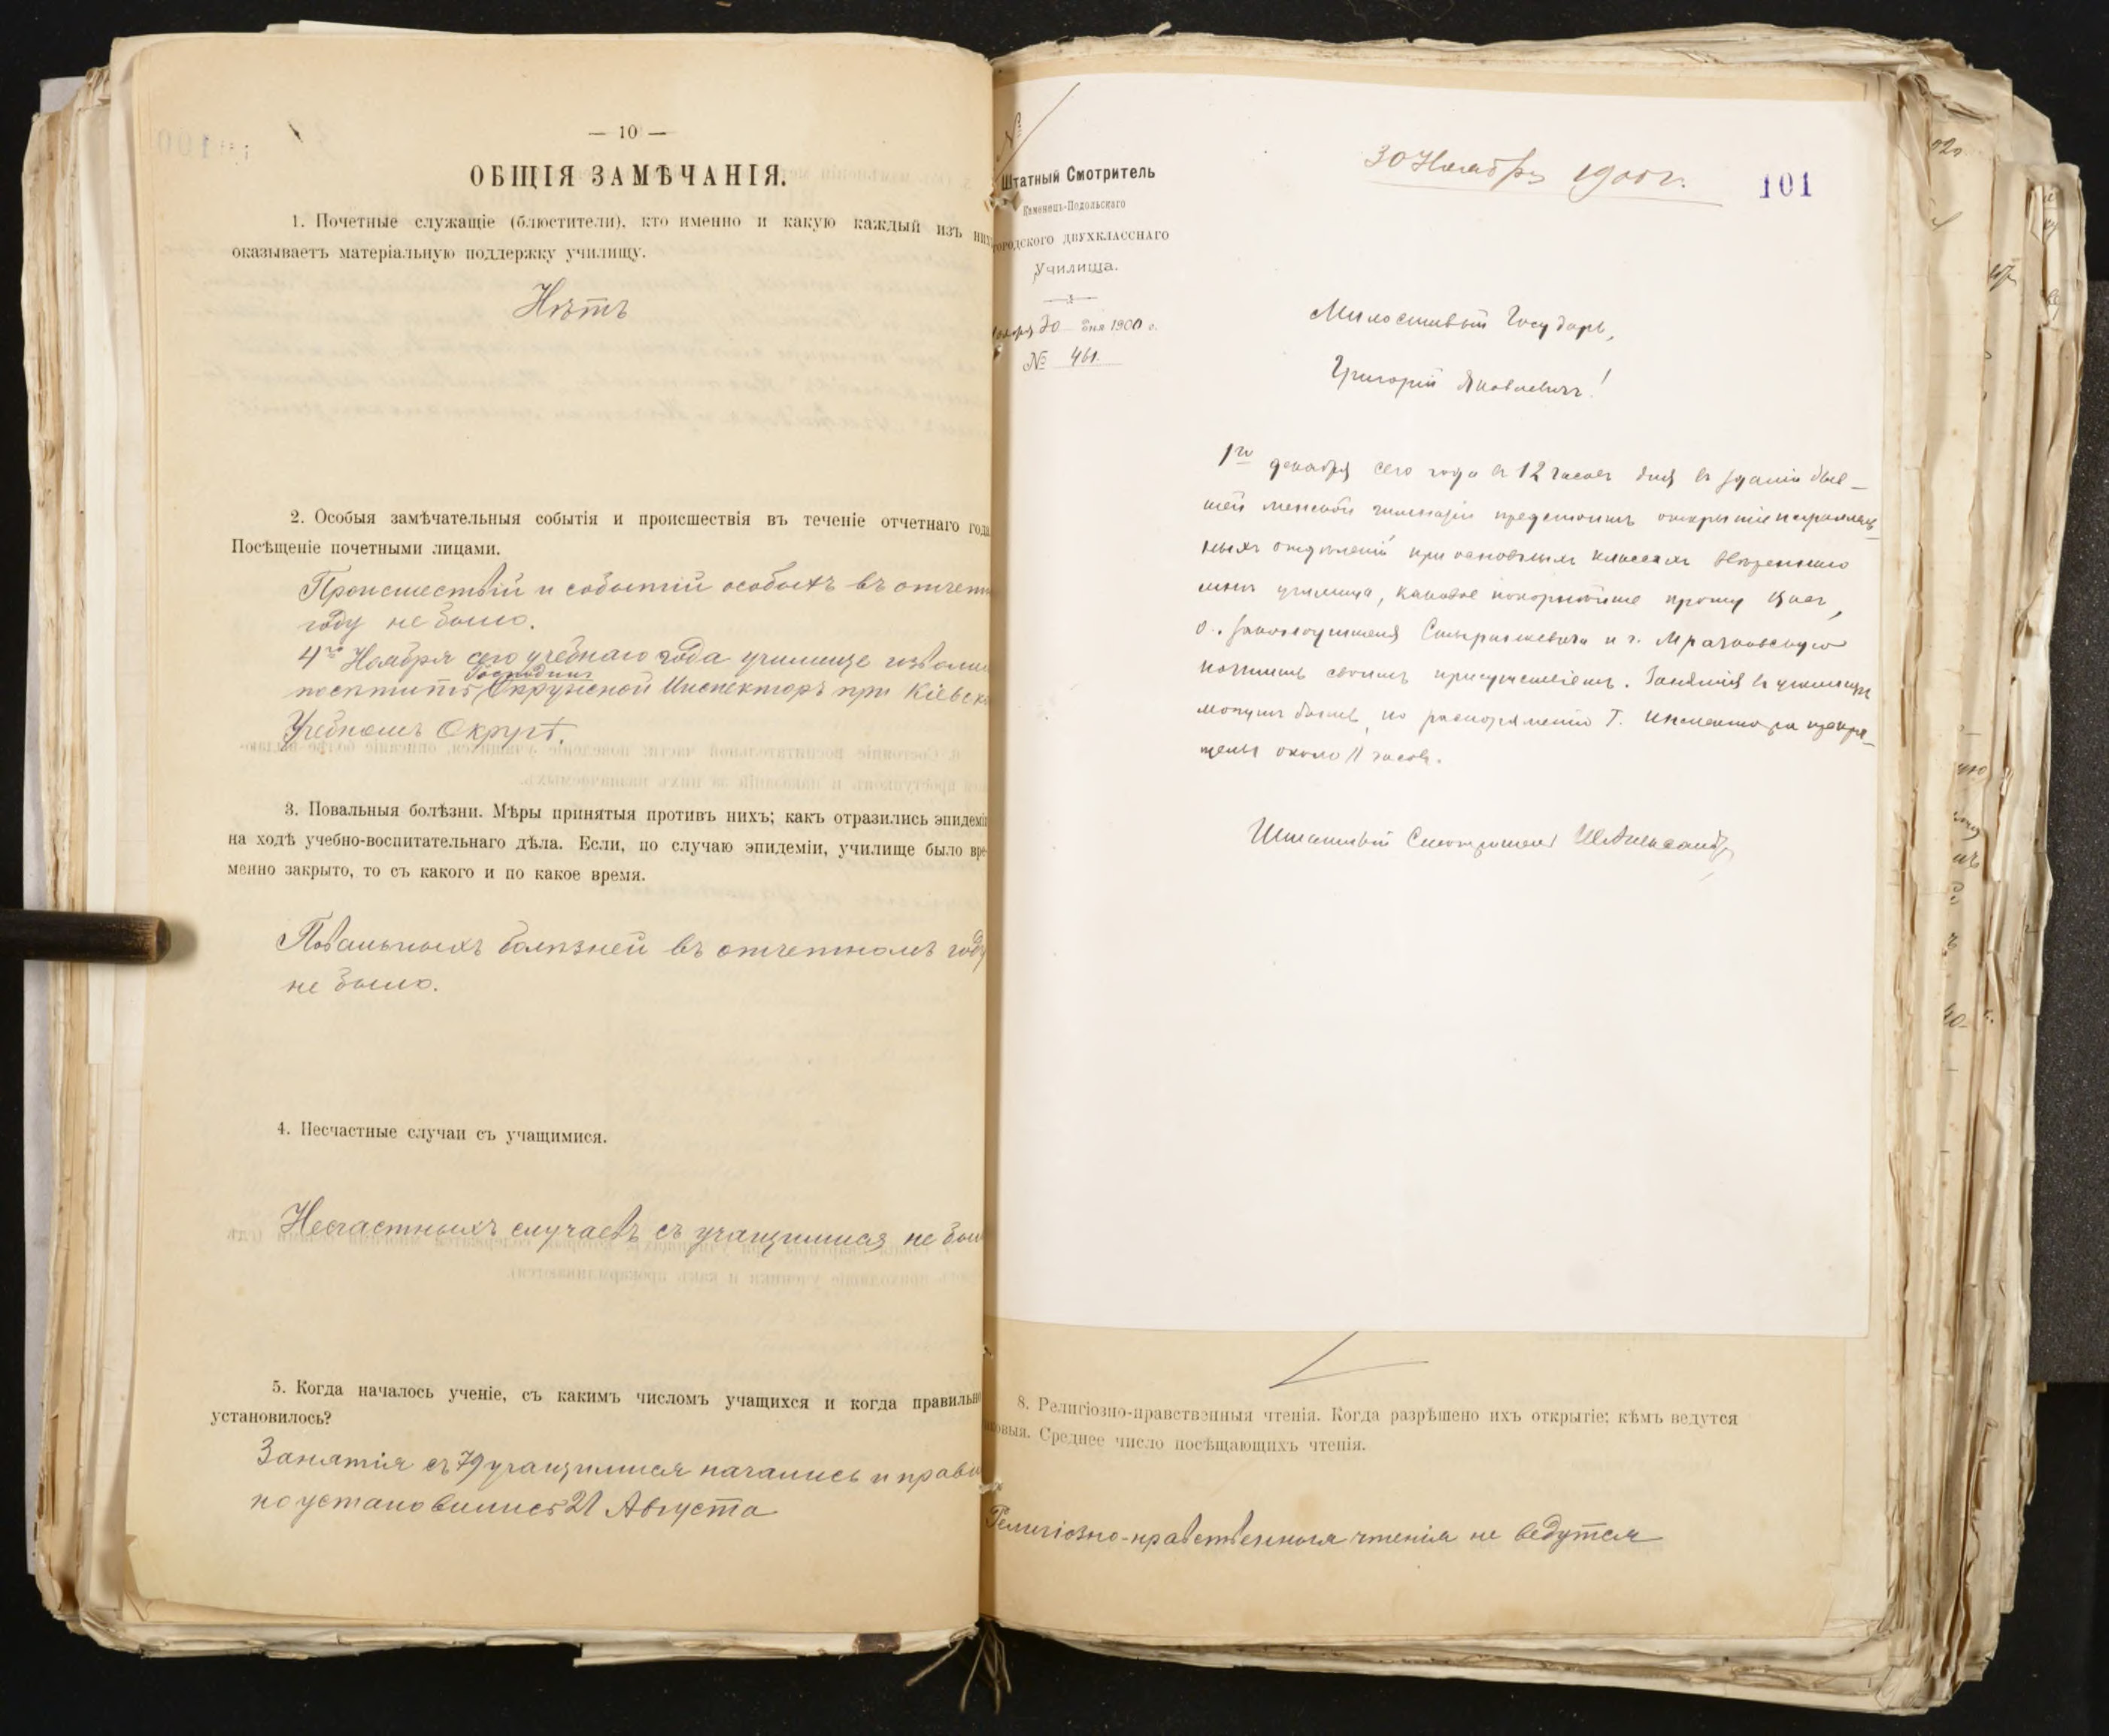 — 10 —
ОБЩІЯ ЗАМѢЧАНІЯ.
1. Почетные служащіе (блюстители), кто именно и какую каждый изъ нихъ
оказываетъ матеріальную поддержку училищу.
Нѣтъ
2. Особыя замѣчательныя событія и происшествія въ теченіе отчетнаго года
Посѣщеніе почетными лицами.
Происшествій и событій особыхъ въ отчетн
году не было.
4го Ноября сего учебнаго года училище изволи
Господинъ
посѣтить Окружной Инспекторъ при Кіевск
Учебномъ Округѣ.
3. Повальныя болѣзни. Мѣры принятыя противъ нихъ; какъ отразились эпидеміи
на ходѣ учебно-воспитательнаго дѣла. Если, по случаю эпидеміи, училище было вре-
менно закрыто, то съ какого и по какое время.
Повальныхъ болѣзней въ отчетномъ году
не было.
4. Несчастные случаи съ учащимися.
Несчастныхъ случаевъ съ учащимися не был
5. Когда началось ученіе, съ какимъ числомъ учащихся и когда правильно
установилось?
Занятія съ 79 учащимися начались и прави
но установились 21 Августа
Штатный Смотритель
Каменецъ-Подольскаго
городского двухкласснаго
Училища.
30 дня 1900 г.
№ 461.
30 Ноября 1900 г.
101
Милостивый Государь,
Григорій Яковлевичъ!
1го декабря сего года въ 12 часовъ дня въ зданіи быв-
шей женской гимназіи предстоитъ открытіе параллель
ныхъ отдѣленій при основныхъ классахъ ввѣреннаго
мнѣ училища, каковое покорнѣйше прошу Васъ,
о. законоучителя и г. Мрачковскую
почтить своимъ присутствіемъ. Занятія въ училищѣ
могутъ быть, по распоряженію Г. Инспектора прекра-
щены около 11 часовъ.
Штатный Смотритель
8. Религіозно-нравственныя чтенія. Когда разрѣшено ихъ открытіе; кѣмъ ведутся
ковыя. Среднее число посѣщающихъ чтенія.
Религіозно-нравственныя чтенія не ведутся